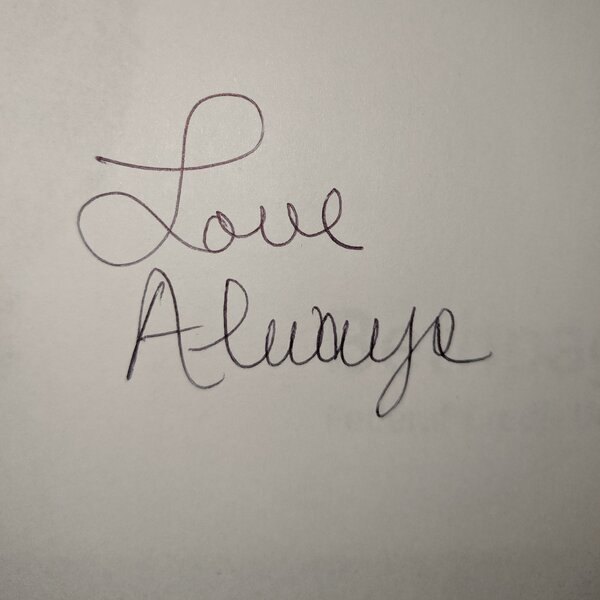 Love
Always